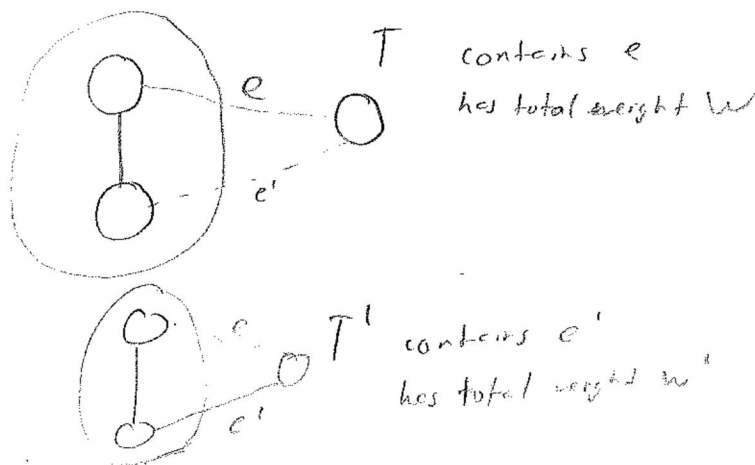 T contains e
has total weight W
e
e'
T' contains e'
has total weight w'
e
e'